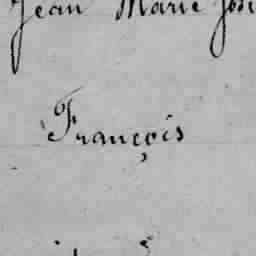 Jean Marie
François